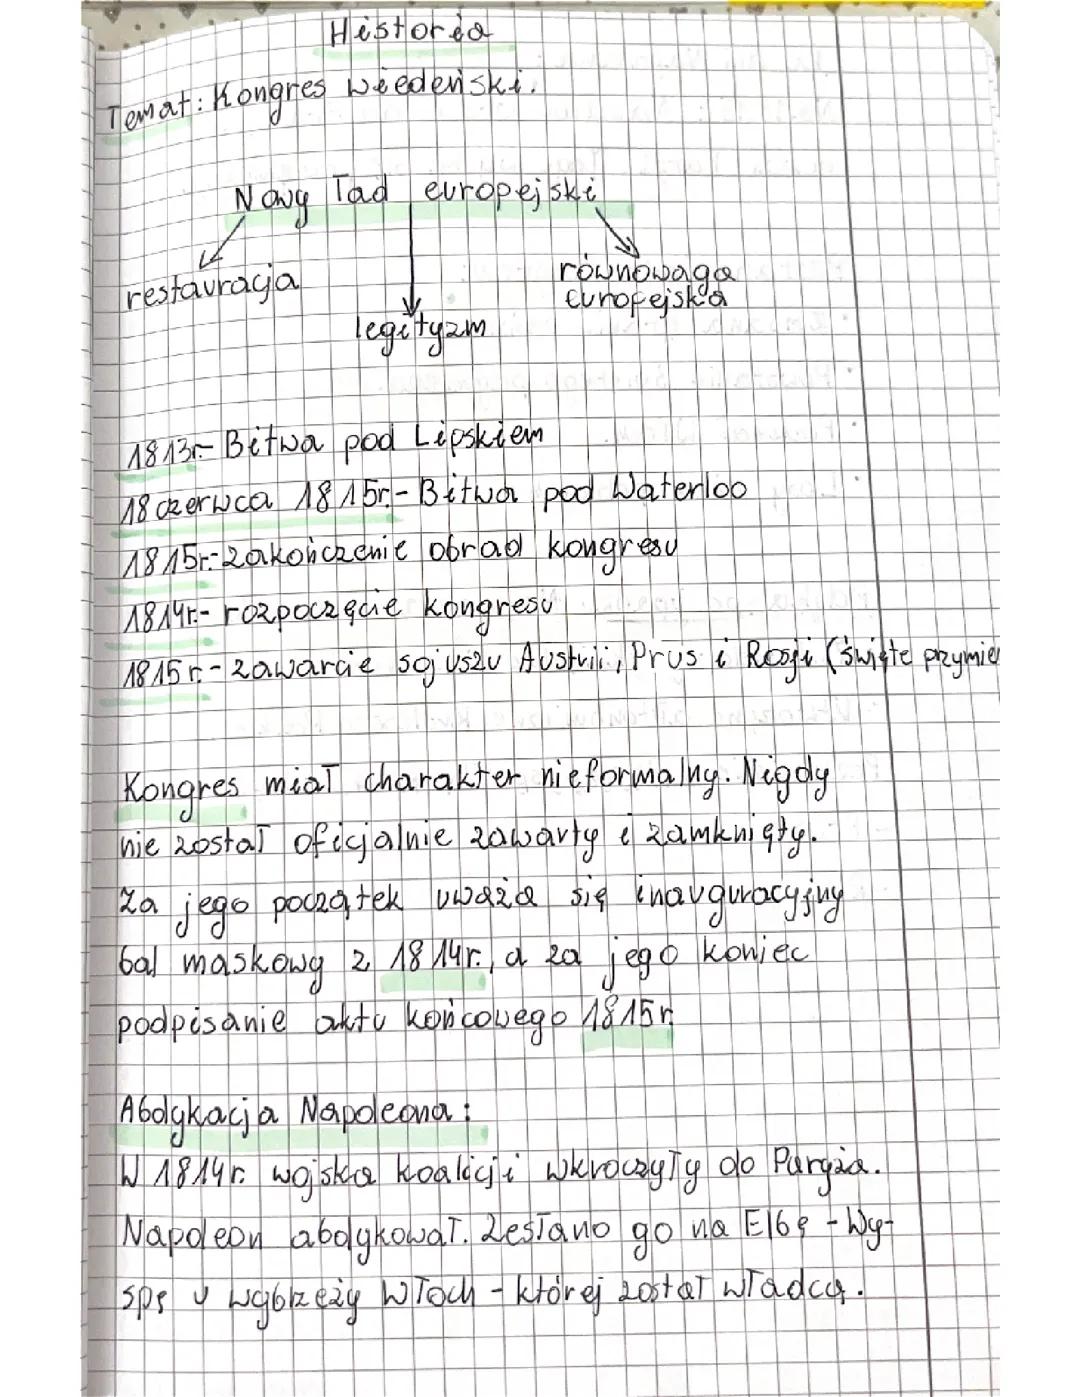 Historia
Temat: Kongres wiedeński.
Nowy ład europejski
restauracja
równowaga
europejska
legityzm
1813r.- Bitwa pod Lipskiem
18 czerwca 1815r.- Bitwa pod Waterloo
1815r.- zakończenie obrad kongresu
1814r.- rozpoczęcie kongresu
1815 r.- zawarcie sojuszu Austrii, Prus i Rosji (święte przymier
Kongres miał charakter nieformalny. Nigdy
nie został oficjalnie zawarty i zamknięty.
Za jego początek uważa się inauguracyjny
bal maskowy z 1814r., a za jego koniec
podpisanie aktu końcowego 1815r.
Abdykacja Napoleona:
W 1814r. wojska koalicji wkroczyły do Paryża.
Napoleon abdykował. Zesłano go na Elbę - Wy-
spę u wybrzeży Włoch - której został władcą.